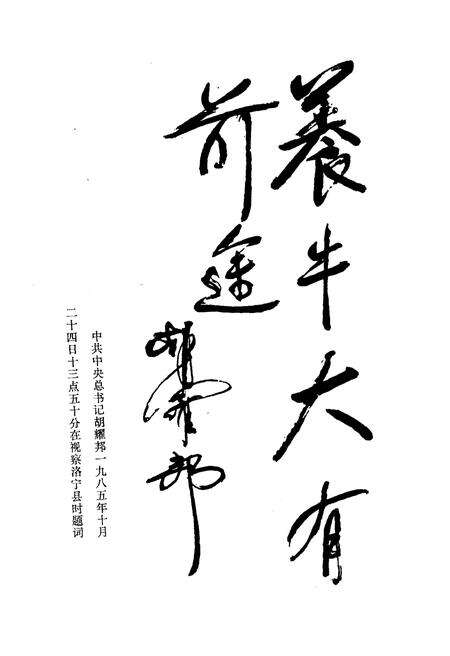 養牛大有
前途
胡耀邦
中共中央总书记胡耀邦一九八五年十月
二十四日十三点五十分在视察洛宁县时题词